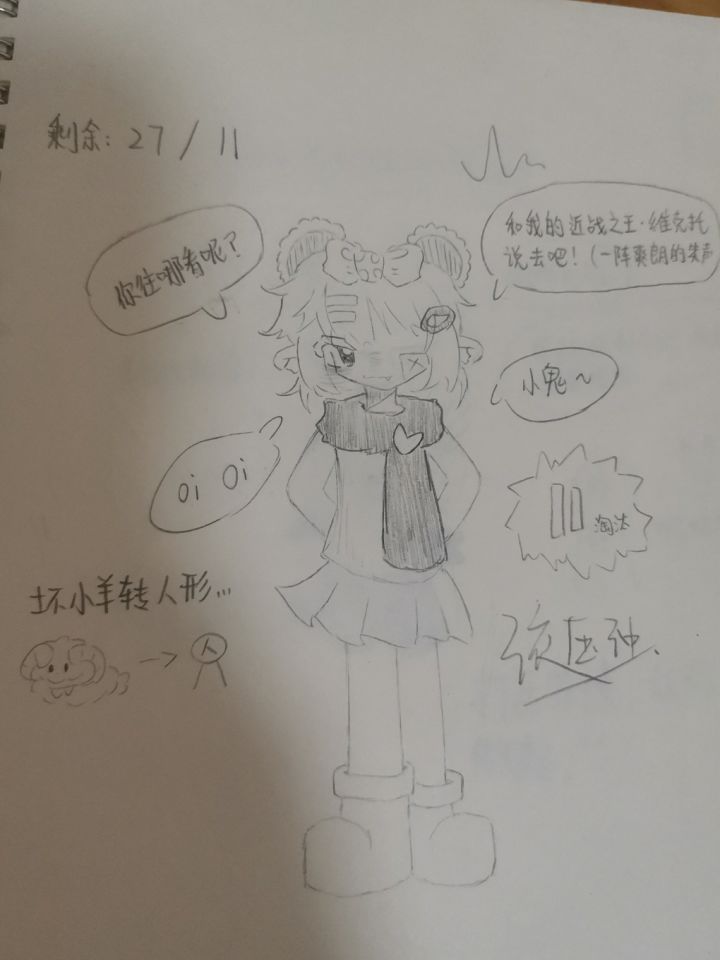 剩余：27 / 11
你往哪看呢？
和我的近战之王·维克托
说去吧！（一阵爽朗的笑声
小鬼～
oi oi
11 淘汰
坏小羊转人形...
人